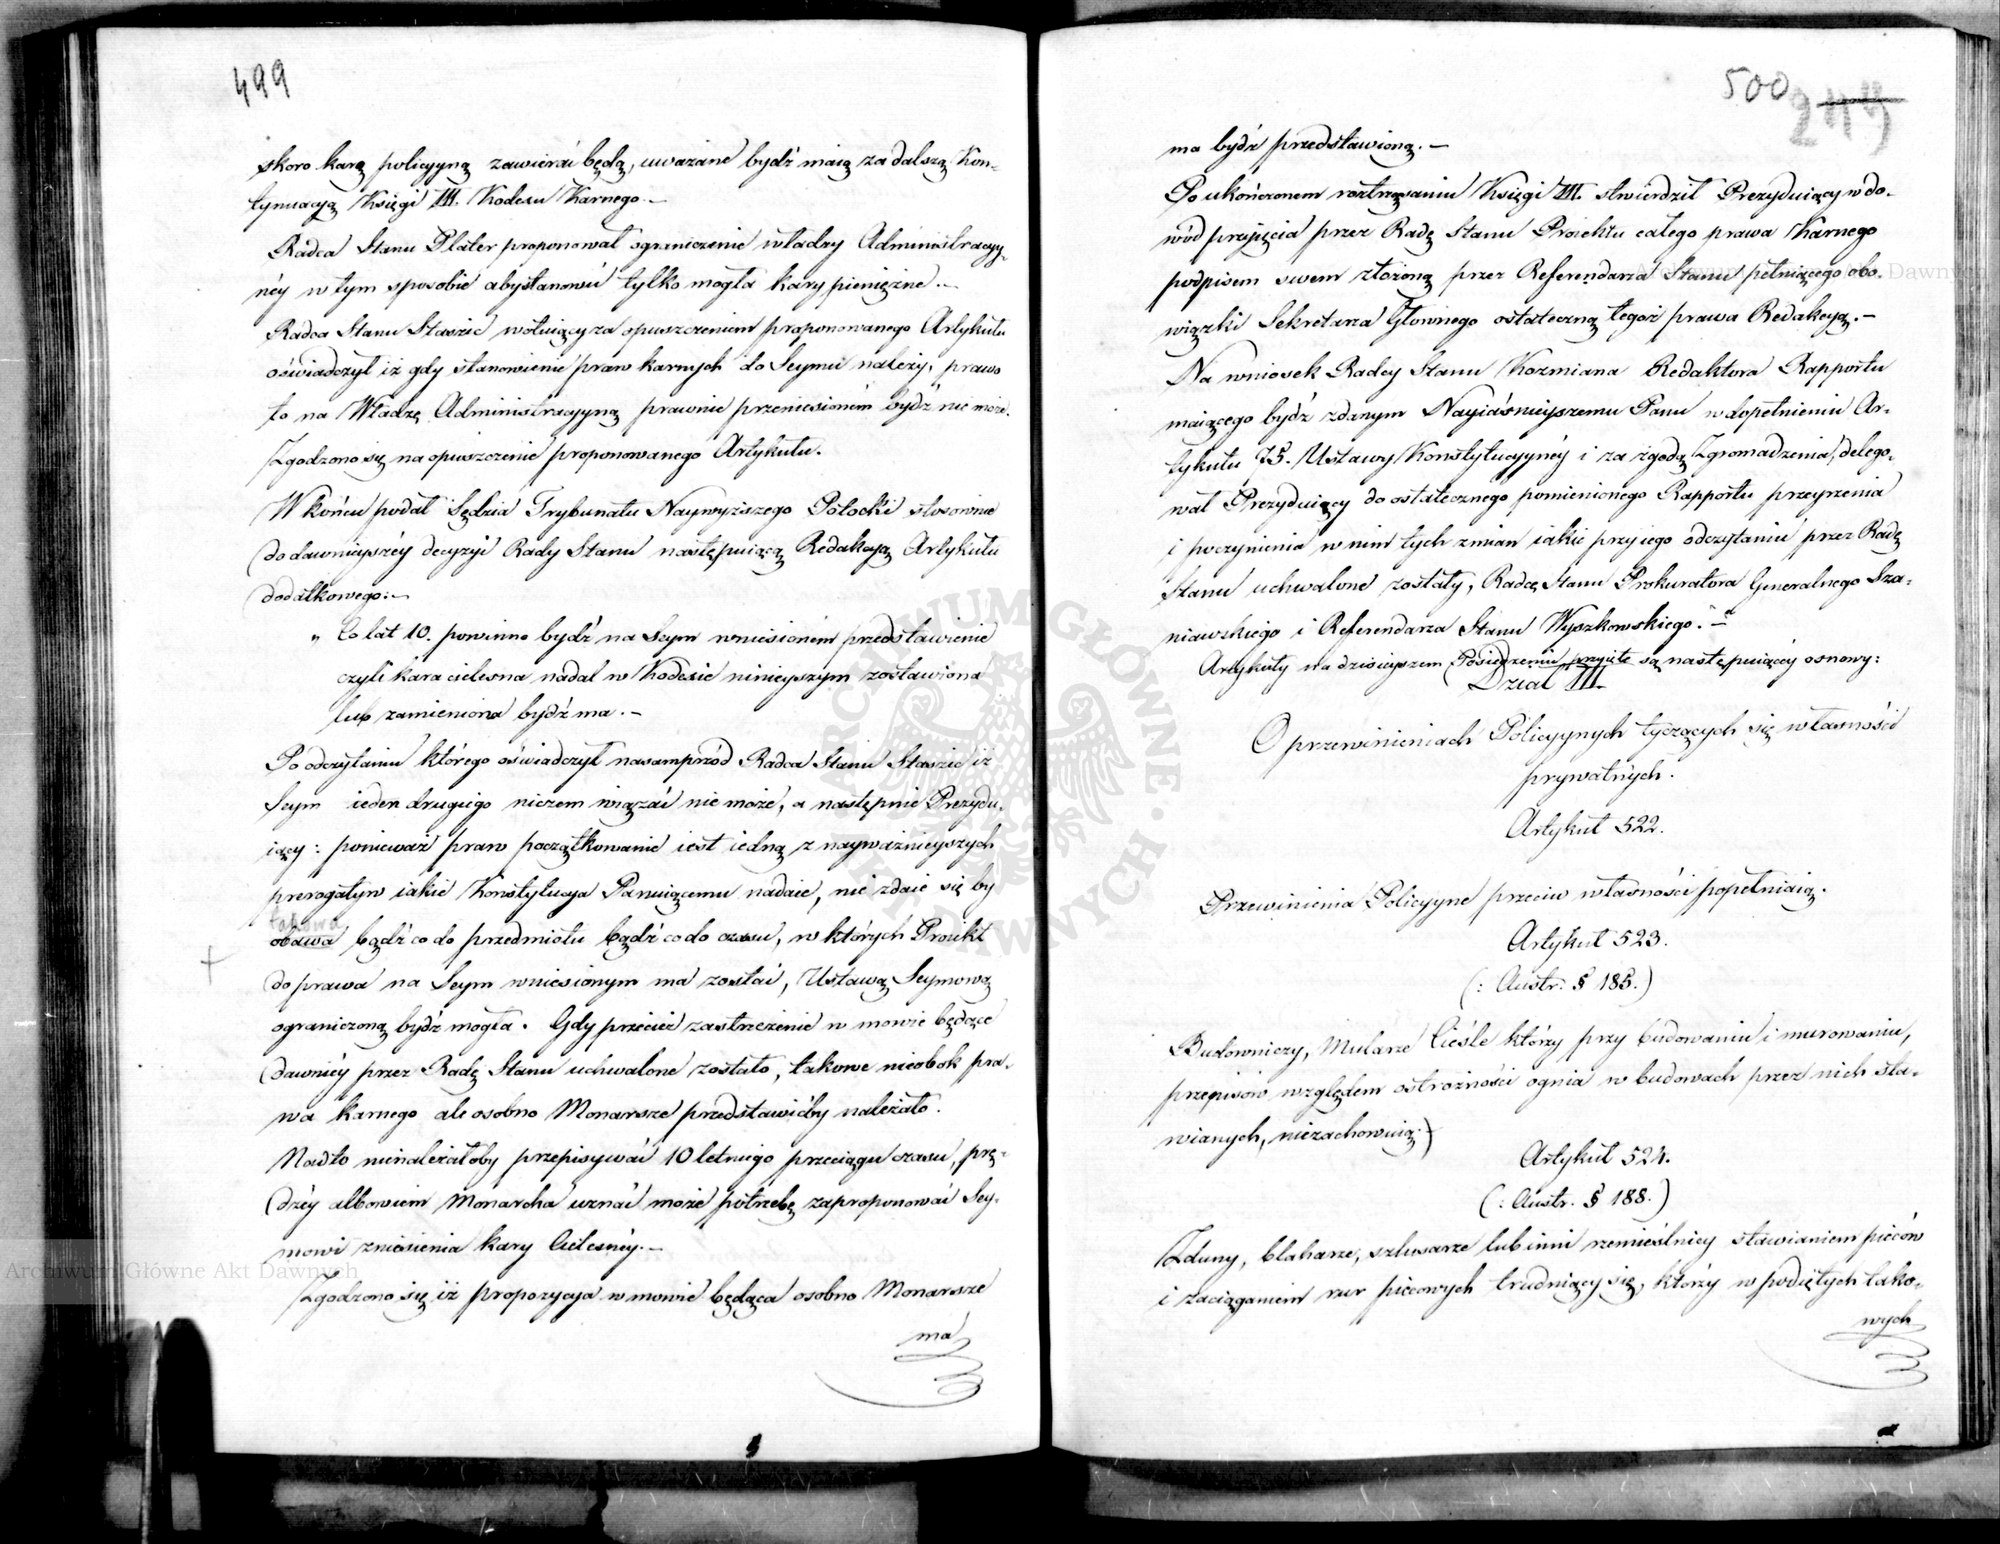 499
skoro karę policyyną zawierać będą, uważane bydź maią za dalszą Kon-
tynuacyą Księgi III. Kodexu Karnego.-
Radca Stanu Plater proponował ograniczenie władzy Administracyy-
néy w tym sposobie aby stanowić tylko mogła kary pieniężne.-
Radca Stanu Staszic wotuiący za opuszczeniem proponowanego Artykułu
oświadczył iż gdy stanowienie praw karnych do Seymu należy, prawo
to na Władzę Administracyyną prawnie przeniesioném bydź nie może.
Zgodzono się na opuszczenie proponowanego Artykułu.
W końcu podał Sędzia Trybunału Naywyższego Potocki stosownie
do dawnieyszéy decyzyi Rady Stanu następuiącą Redakcyą Artykułu
dodatkowego:-
„ Co lat 10. powinno bydź na Seym wniesioném przedstawienie
czyli kara cielesna nadal w Kodexie ninieyszym zostawiona
lub zamieniona bydź ma.-
Po odczytaniu którego oświadczył nasamprzód Radca Stanu Staszic iż
Seym ieden drugiego niczem wiązać nie może, a następnie Prezydu-
iący: ponieważ praw początkowanie iest iedną z nayważnieyszych
prerogatyw iakie Konstytucya Panuiącemu nadaie, nie zdaie się by
takowa
obawa bądź co do przedmiotu bądź co do czasu, w których Proiekt
do prawa na Seym wniesionym ma zostać, Ustawą Seymową
ograniczoną bydź mogła. Gdy przecież zastrzeżenie w mowie będące
dawniéy przez Radę Stanu uchwalone zostało, takowe nieobok pra-
wa karnego ale osobno Monarsze przedstawićby należało.
Nadto nienależałoby przepisywać 10 letniego przeciągu czasu, prę-
dzéy albowiem Monarcha uznać może potrzebę zaproponować Sey-
mowi zniesienia kary Cielesnéy.-
Zgodzono się iż propozycya w mowie będąca osobno Monarsze
ma
500
245
ma bydź przedstawioną.-
Po ukończonem roztrząsaniu Księgi III. stwierdził Prezyduiący w do-
wód przyięcia przez Radę Stanu Proiektu całego prawa Karnego
podpisem swem złożoną przez Referendarza Stanu pełniącego obo-
wiązki Sekretarza Głownego ostateczną tegoż prawa Redakcyą.-
Na wniosek Radcy Stanu Kozmiana Redaktora Rapportu
maiącego bydź zdanym Nayiaśnieyszemu Panu w dopełnieniu Ar-
tykułu 75. Ustawy Konstytucyynéy i za zgodą Zgromadzenia, delego-
wał Prezyduiący do ostatecznego pomienionego Rapportu przeyrzenia
i poczynienia w nim tych zmian iakie przy iego odczytaniu przez Radę
Stanu uchwalone zostały, Radcę Stanu Prokuratora Generalnego Sza-
niawskiego i Referendarza Stanu Wyszkowskiego.-
Artykuły na dzisieyszem Posiedzeniu przyięte są następuiącéy osnowy:
Dział III.
O przewinieniach Policyynych tyczących się własności
prywatnych.
Artykuł 522.
Przewinienia Policyyne przeciw własności popełniaią.
Artykuł 523.
(: Austr: § 185.)
Budowniczy, Mularze Cieśle którzy przy budowaniu i murowaniu,
przepisów względem ostrożności ognia w budowach przez nich sta-
wianych, niezachowuią.
Artykuł 524.
(: Austr. § 188.)
Zduny, blaharze, szlusarze lub inni rzemieślnicy stawianiem pieców
i zaciąganiem rur piecowych trudniący się, którzy w podiętych tako-
wych
Archiwum Główne Akt Dawnych
ARCHIWUM GŁÓWNE AKT DAWNYCH